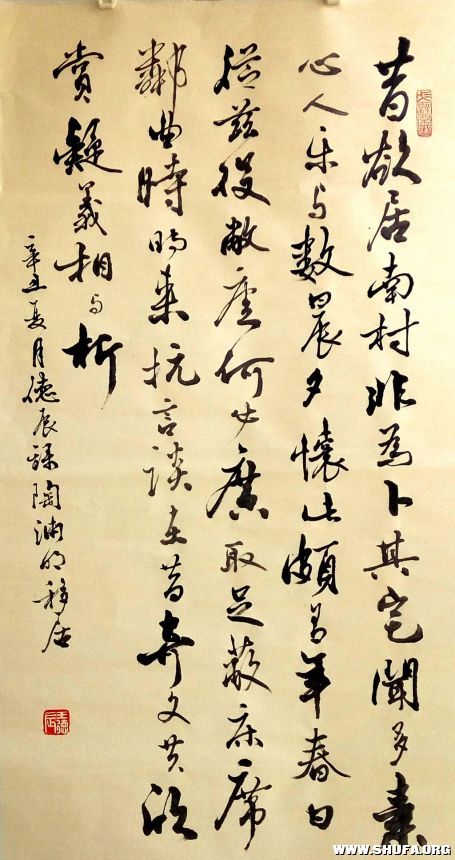 昔欲居南村非為卜其宅聞多素
心人乐与數晨夕懷此頗有年春日
從兹役敝廬何必廣取足蔽床席
鄰曲時時來抗言談在昔奇文共欣
賞疑義相与析
辛丑夏月德辰録陶渊明移居
WWW.SHUFA.ORG